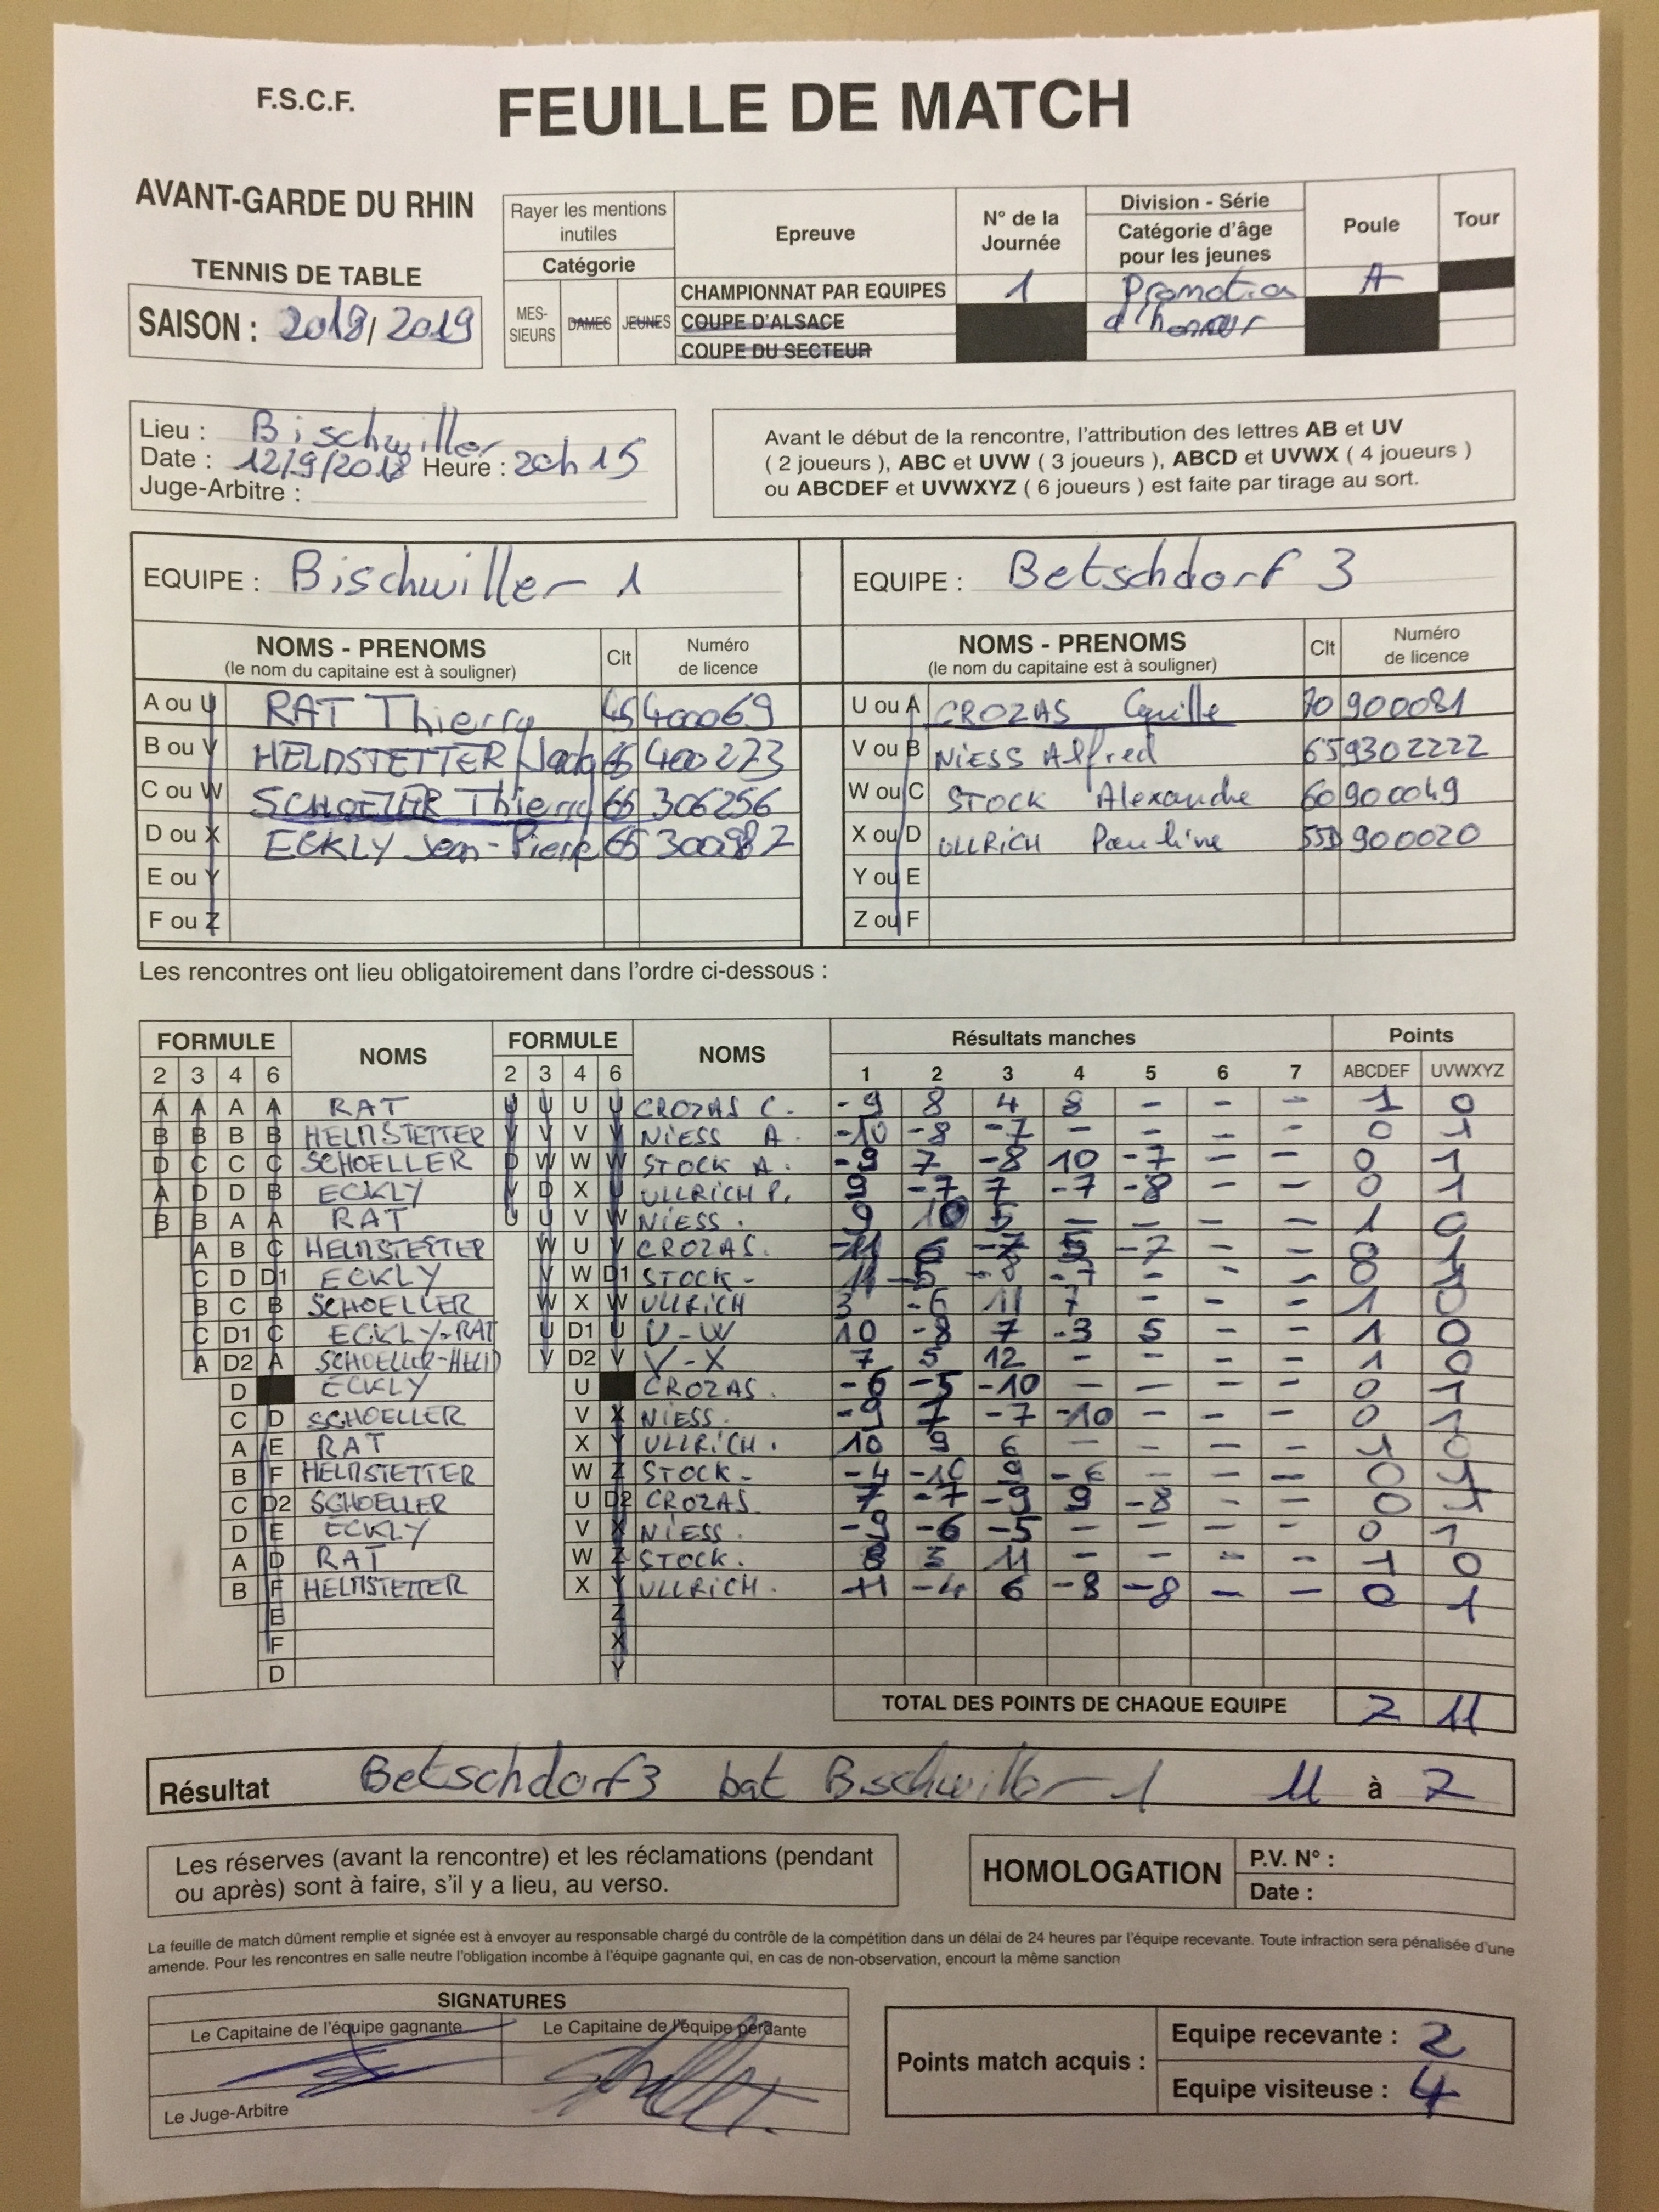 F.S.C.F.
FEUILLE DE MATCH
AVANT-GARDE DU RHIN
TENNIS DE TABLE
SAISON : 2018/2019
Rayer les mentions inutiles
Catégorie
MES-SIEURS DAMES JEUNES
Epreuve
N° de la Journée
Division - Série
Catégorie d'âge pour les jeunes
Poule
Tour
CHAMPIONNAT PAR EQUIPES 1 Promotion d'honneur A
COUPE D'ALSACE
COUPE DU SECTEUR
Lieu : Bischwiller
Date : 12/9/2018 Heure : 20h15
Juge-Arbitre :
Avant le début de la rencontre, l'attribution des lettres AB et UV
( 2 joueurs ), ABC et UVW ( 3 joueurs ), ABCD et UVWX ( 4 joueurs )
ou ABCDEF et UVWXYZ ( 6 joueurs ) est faite par tirage au sort.
EQUIPE : Bischwiller 1
NOMS - PRENOMS Clt Numéro de licence
(le nom du capitaine est à souligner)
A ou U RAT Thierry 45 400069
B ou V HELMSTETTER 65 400273
C ou W SCHOELLER Thierry 65 306256
D ou X ECKLY Jean-Pierre 65 300987
E ou Y
F ou Z
EQUIPE : Betschdorf 3
NOMS - PRENOMS Clt Numéro de licence
(le nom du capitaine est à souligner)
U ou A CROZAS 70 900081
V ou B NIESS Alfred 65 9302222
W ou C STOCK Alexandre 60 900049
X ou D ULLRICH Pauline 55D 900020
Y ou E
Z ou F
Les rencontres ont lieu obligatoirement dans l'ordre ci-dessous :
FORMULE NOMS FORMULE NOMS Résultats manches Points
2 3 4 6 2 3 4 6 1 2 3 4 5 6 7 ABCDEF UVWXYZ
A A A A RAT U U U U CROZAS C. -9 8 4 8 - - - 1 0
B B B B HELMSTETTER V V V V NIESS A. -10 -8 -7 - - - - 0 1
D C C C SCHOELLER D W W W STOCK A. -9 7 -8 10 -7 - - 0 1
A D D B ECKLY V D X U ULLRICH P. 9 -7 7 -7 -8 - - 0 1
B B A A RAT U U V W NIESS. 9 10 5 - - - - 1 0
A B C HELMSTETTER W U V CROZAS. -11 6 -7 5 -7 - - 0 1
C D D1 ECKLY V W D1 STOCK - 11 -5 -8 -7 - - - 0 1
B C B SCHOELLER W X W ULLRICH 3 -6 11 7 - - - 1 0
C D1 C ECKLY-RAT U D1 U U-W 10 -8 7 -3 5 - - 1 0
A D2 A SCHOELLER-HELM V D2 V V-X 7 5 12 - - - - 1 0
D ECKLY U CROZAS. -6 -5 -10 - - - - 0 1
C D SCHOELLER V X NIESS. -9 7 -7 -10 - - - 0 1
A E RAT X Y ULLRICH. 10 9 6 - - - - 1 0
B F HELMSTETTER W Z STOCK - -4 -10 9 -6 - - - 0 1
C D2 SCHOELLER U D2 CROZAS 7 -7 -9 9 -8 - - 0 1
D E ECKLY V X NIESS. -9 -6 -5 - - - - 0 1
A D RAT W Z STOCK. 8 3 11 - - - - 1 0
B F HELMSTETTER X Y ULLRICH. -4 6 -8 -8 - - 0 1
E Z
F X
D Y
TOTAL DES POINTS DE CHAQUE EQUIPE 7 11
Résultat Betschdorf 3 bat Bischwiller 1 11 à 7
Les réserves (avant la rencontre) et les réclamations (pendant
ou après) sont à faire, s'il y a lieu, au verso.
HOMOLOGATION
P.V. N° :
Date :
La feuille de match dûment remplie et signée est à envoyer au responsable chargé du contrôle de la compétition dans un délai de 24 heures par l'équipe recevante. Toute infraction sera pénalisée d'une
amende. Pour les rencontres en salle neutre l'obligation incombe à l'équipe gagnante qui, en cas de non-observation, encourt la même sanction
SIGNATURES
Le Capitaine de l'équipe gagnante Le Capitaine de l'équipe perdante
Le Juge-Arbitre
Points match acquis :
Equipe recevante : 2
Equipe visiteuse : 4